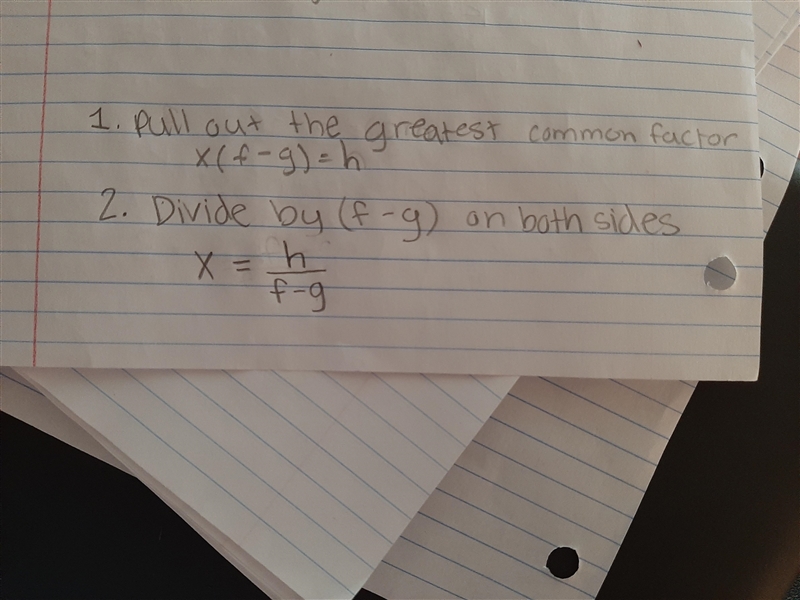 1. Pull out the greatest common factor
x(f-g)=h
2. Divide by (f-g) on both sides
x = h/f-g